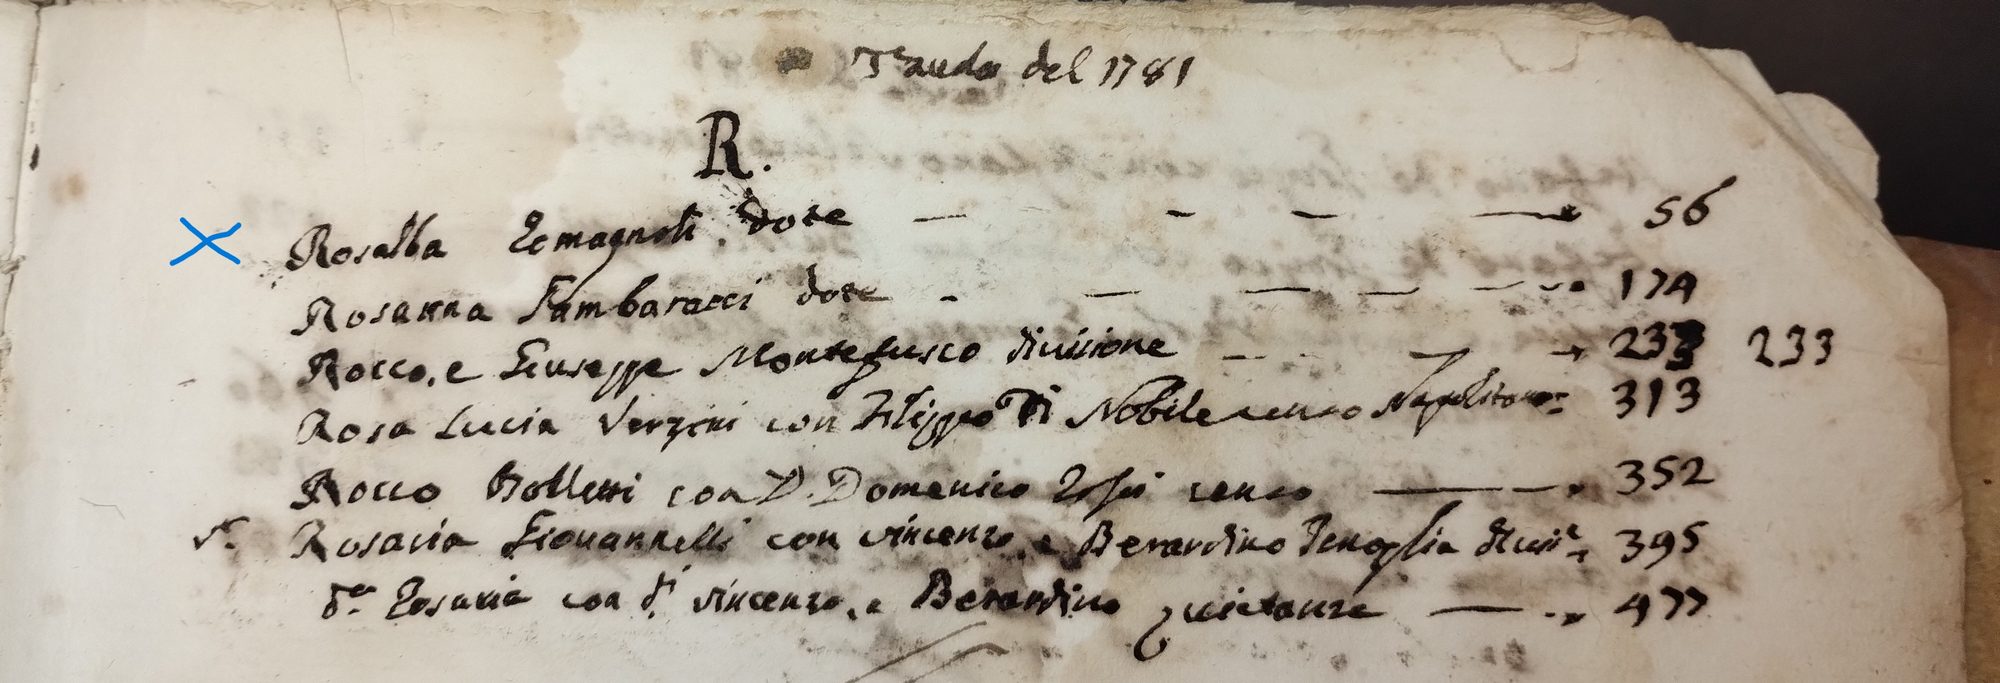 del 1781
R.
Rosalba Romagnoli dote 56
Rosanna Tambaracci dote 174
Rocco, e Giuseppe Montefusco divisione 233 233
Rosa Lucia Verzini con Filippo Di Nobile censo Napolitano 313
Rocco Bolletti con D. Domenico censo 352
Rosaria Giovannelli con Vincenzo, e Berardino divis.e 395
d.a Rosaria con d.i Vincenzo, e Berardino quietanza 477